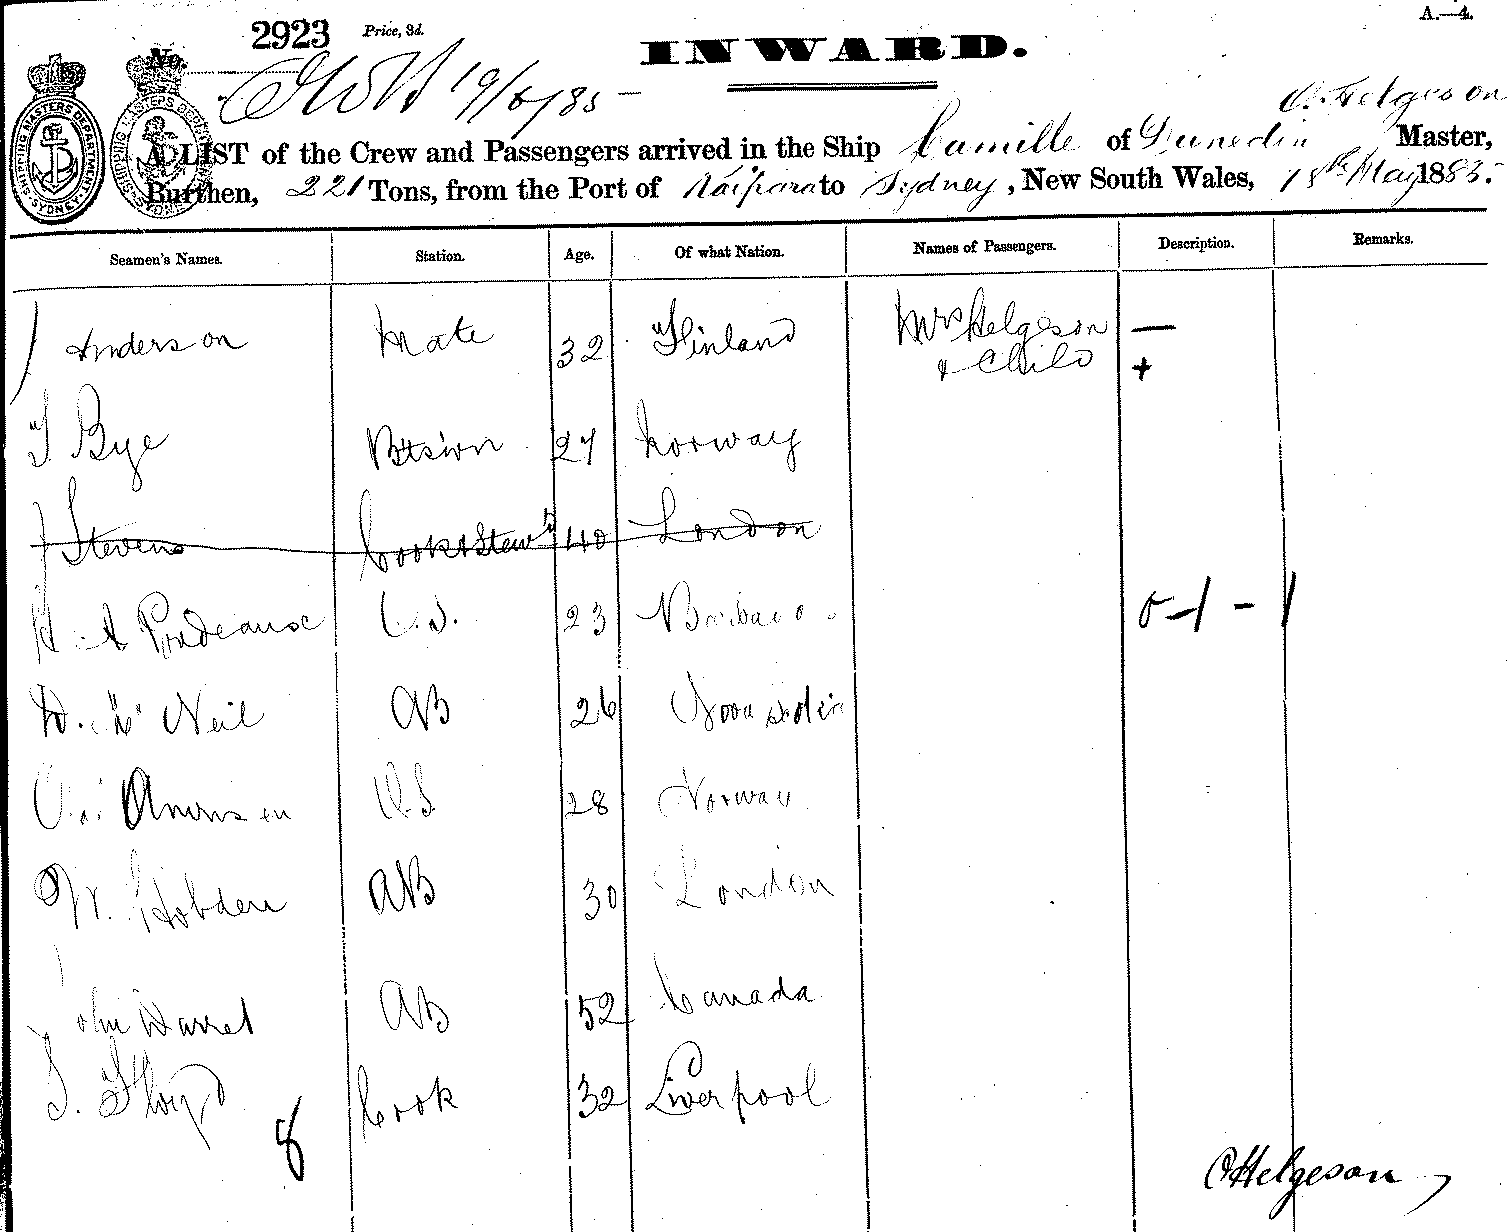 A.—4.
No. 2923 Price, 3d.
INWARD.
19/5/85 -
O. Helgeson
A LIST of the Crew and Passengers arrived in the Ship Camille of Dunedin Master,
Burthen, 221 Tons, from the Port of Kaipara to Sydney, New South Wales, 18th May 1885.
Seamen's Names. Station. Age. Of what Nation. Names of Passengers. Description. Remarks.
J Anderson Mate 32 Finland Mrs Helgeson —
& Child +
T Bye Btswn 27 Norway
J Stevens Cook & Stewd 40 London
H. A 23 0-1-1
D. Mc Neil AB 26
O.S 28 Norway
W. Hobden AB 30 London
John Warret AB 52 Canada
T. Floyd Cook 32 Liverpool
8
O Helgeson
SHIPPING MASTERS DEPARTMENT
SYDNEY
SHIPPING MASTERS DEPARTMENT
SYDNEY